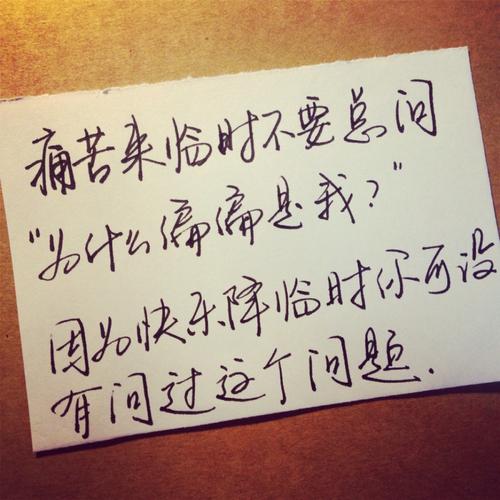 痛苦来临时不要总问
“为什么偏偏是我？”
因为快乐降临时你可没
有问过这个问题.